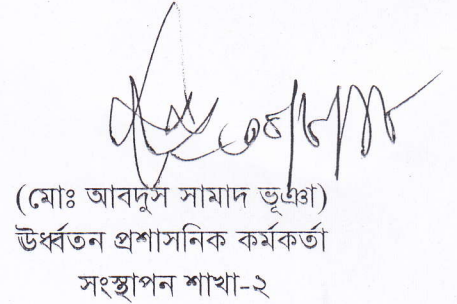 (মোঃ আবদুস সামাদ ভূঞা)
ঊর্ধ্বতন প্রশাসনিক কর্মকর্তা
সংস্থাপন শাখা-২